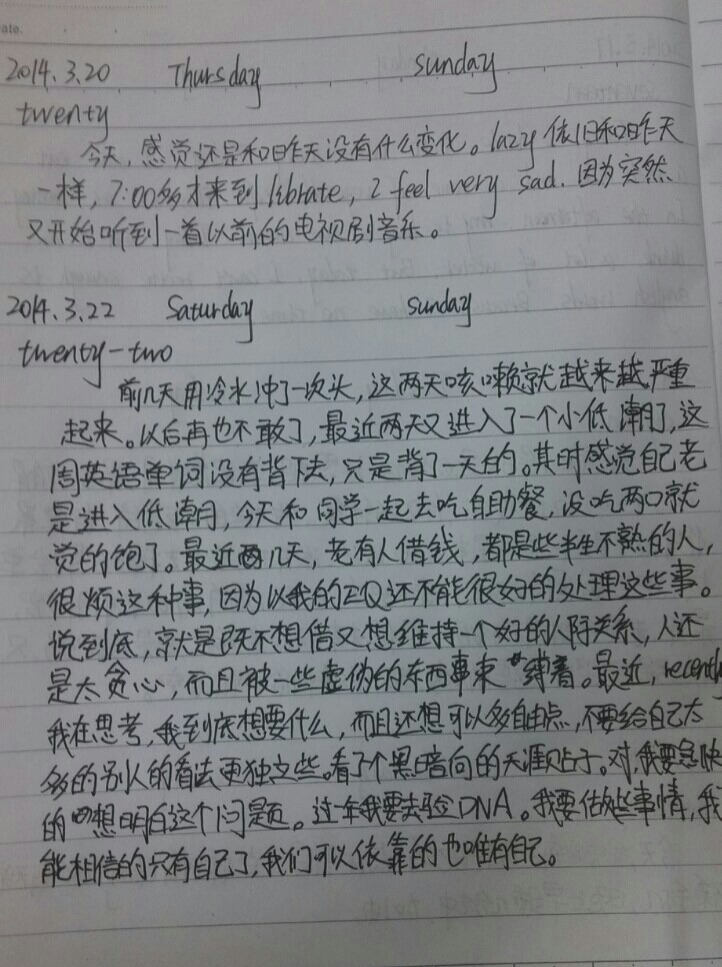 ate.
2014.3.20 Thursday sunday
twenty
今天，感觉还是和昨天没有什么变化。lazy 依旧和昨天
一样，7:00多才来到librate，I feel very sad. 因为突然
又开始听到一首以前的电视剧音乐。
2014.3.22 Saturday sunday
twenty-two
前几天用冷水冲了一次头，这两天咳嗽就越来越严重
起来。以后再也不敢了，最近两天又进入了一个小低潮了，这
周英语单词没有背下去，只是背了一天的。其时感觉自己老
是进入低潮，今天和同学一起去吃自助餐，没吃两口就
觉的饱了。最近几天，老有人借钱，都是些半生不熟的人，
很烦这种事，因为以我的EQ还不能很好的处理这些事。
说到底，就是既不想借又想维持一个好的人际关系，人还
是太贪心，而且被一些虚伪的东西事束缚着。最近，recently
我在思考，我到底想要什么，而且还想可以多自由点，不要给自己太
多的别人的看法更独立些。看了个黑暗向的天涯贴子。对，我要急快
的想明白这个问题。过年我要去验DNA。我要做些事情，我
能相信的只有自己了，我们可以依靠的也唯有自己。